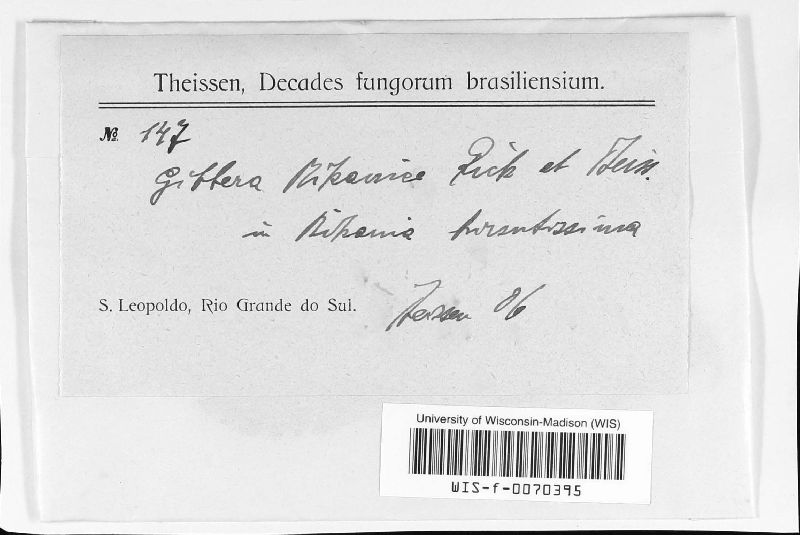 Theissen, Decades fungorum brasiliensium.
No. 147
Gibbera Mikaniae Rick et Theiss.
in Mikania hirsutissima
S. Leopoldo, Rio Grande do Sul. Theissen 06
University of Wisconsin-Madison (WIS)
WIS-f-0070395